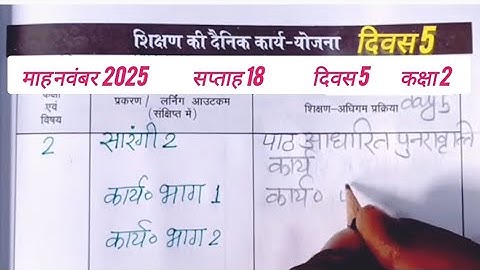 शिक्षण की दैनिक कार्य-योजना दिवस 5
माह नवंबर 2025 सप्ताह 18 दिवस 5 कक्षा 2
एवं
विषय
प्रकरण / लर्निंग आउटकम
(संक्षिप्त में)
शिक्षण-अधिगम प्रक्रिया day 5
2
सारंगी 2
पाठ आधारित पुनरावृत्ति
कार्य
कार्य० भाग 1
कार्य०
कार्य० भाग 2